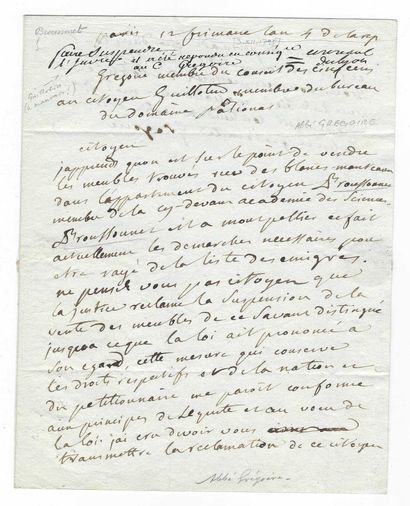 Broussonet
paris 12 frimaire lan 4 de la rep
faire suspendre
l'inventaire il a été repondu en conséqce
au C. Gregoire
Gregoire membre du conseil des cinq cens
au citoyen Guillotin membre du bureau
du domaine National
ABBÉ GREGOIRE
citoyen
j'apprends quon est sur le point de vendre
les meubles trouvés rue des blancs manteaux
dans l'appartement du citoyen Broussonet
membre de la cy-devant academie des sciences.
Broussonet est a montpellier et fait
actuellement les demarches necessaires pour
etre rayé de la liste des emigrés.
ne pensez vous pas citoyen que
la justice reclame la suspension de la
vente des meubles de ce savant distingué
jusqua ceque la loi ait prononcé a
son egard, cette mesure qui conserve
les droits respectifs et de la nation et
du petitionnaire me paroît conforme
aux principes de lequité et au voeu de
la loi. jai cru devoir vous
transmettre la reclamation de ce citoyen
Abbé Grégoire.